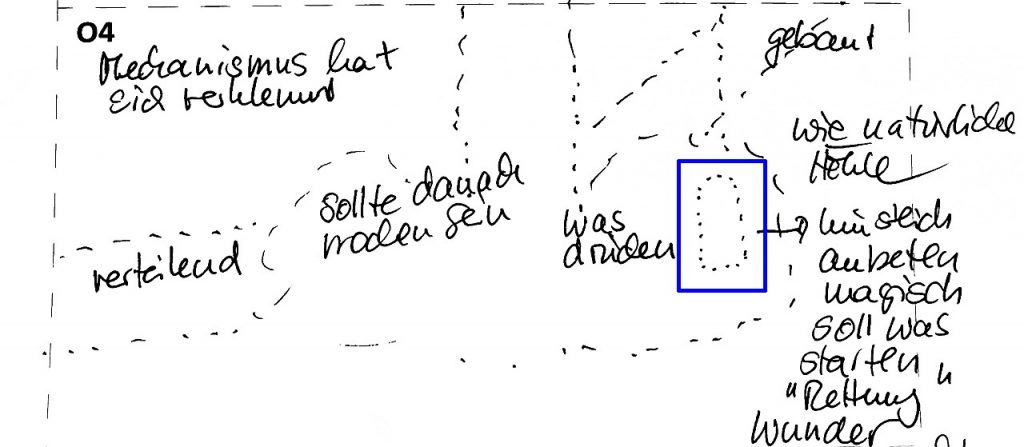 O4
Mechanismus hat
sich verklemmt
gebaut
wie natürliche
Höhle
sollte danach
trocken sein
verteilend
was
drücken
hinsteich
anbeten
magisch
soll was
starten
"Rettung"
Wunder